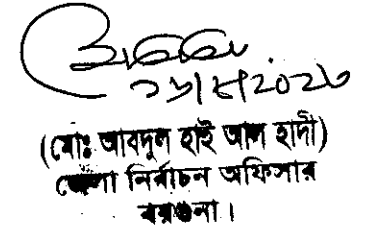 (মোঃ আবদুল হাই আল হাদী)
জেলা নির্বাচন অফিসার
বরগুনা।